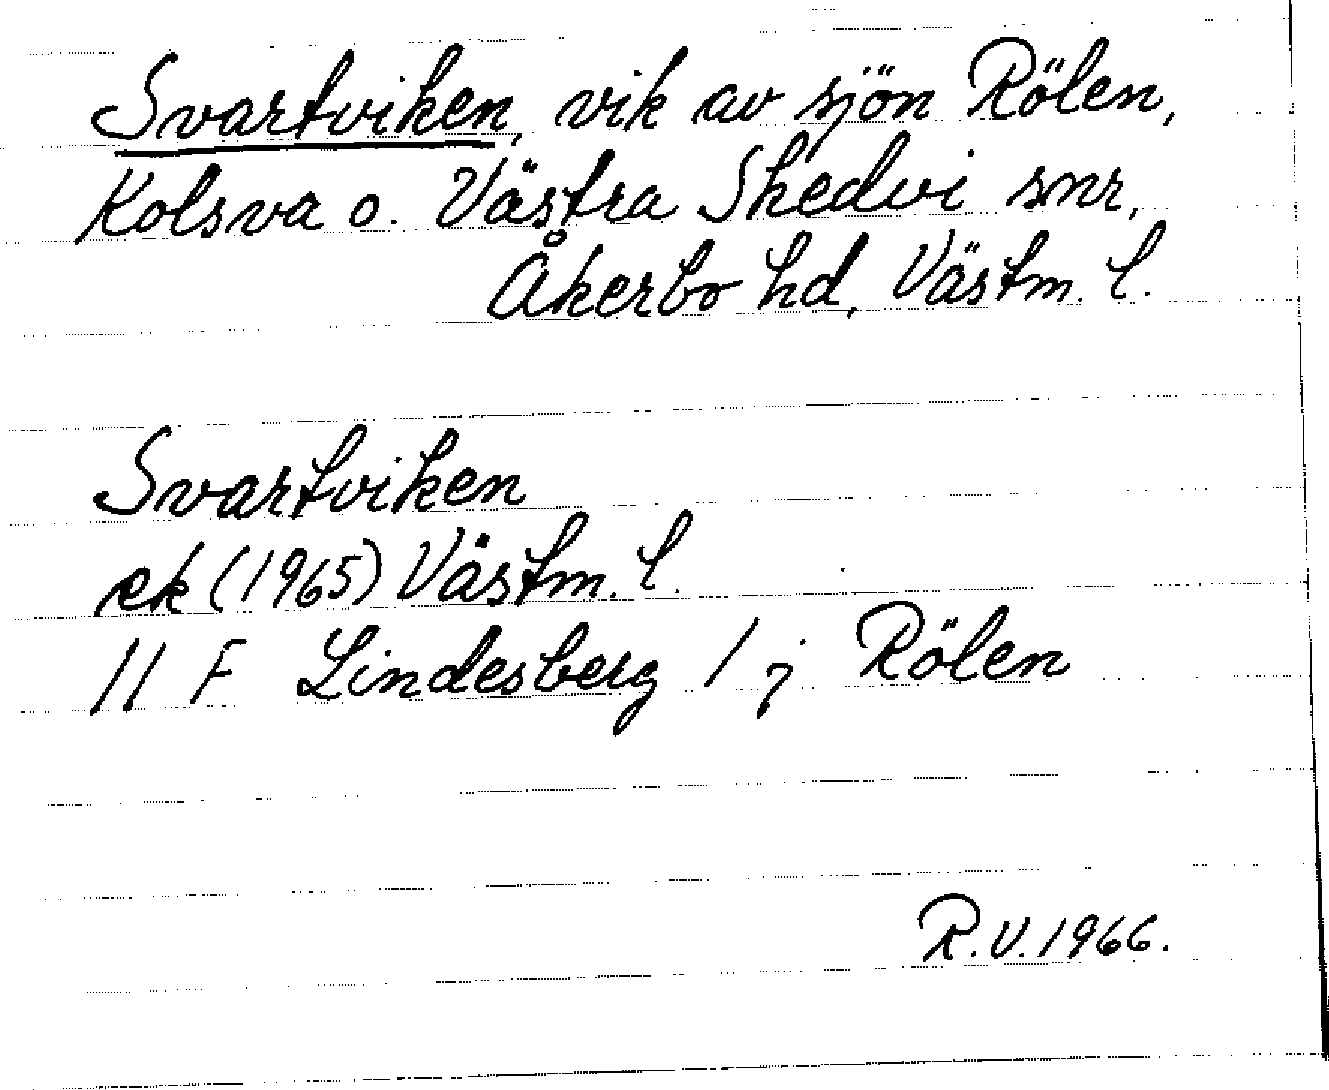 Svartviken, vik av sjön Rölen,
Kolsva o. Västra Skedvi snr,
Åkerbo hd, Västm. l.
Svartviken
ek (1965) Västm. l.
11 F Lindesberg 1 j Rölen
R.V. 1966.